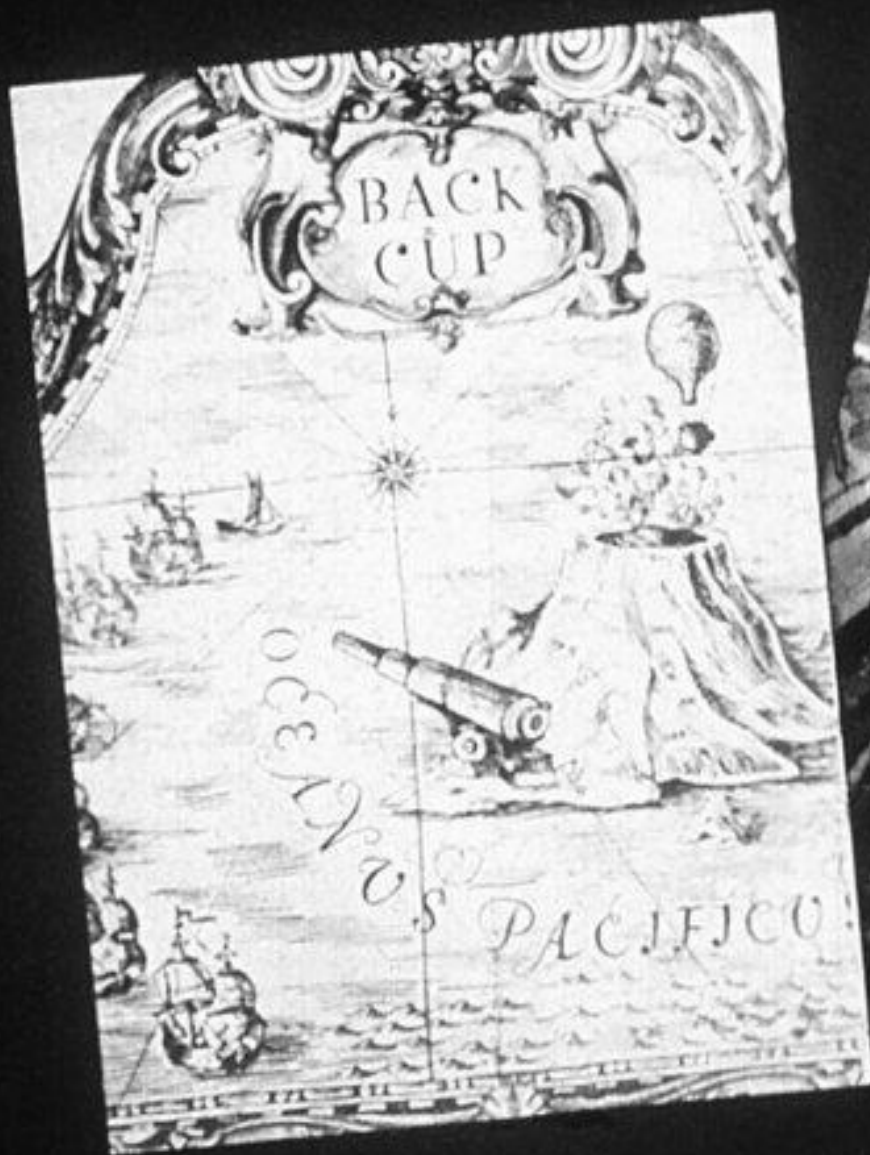 BACK
CUP
OCEANUS
PACIFICU